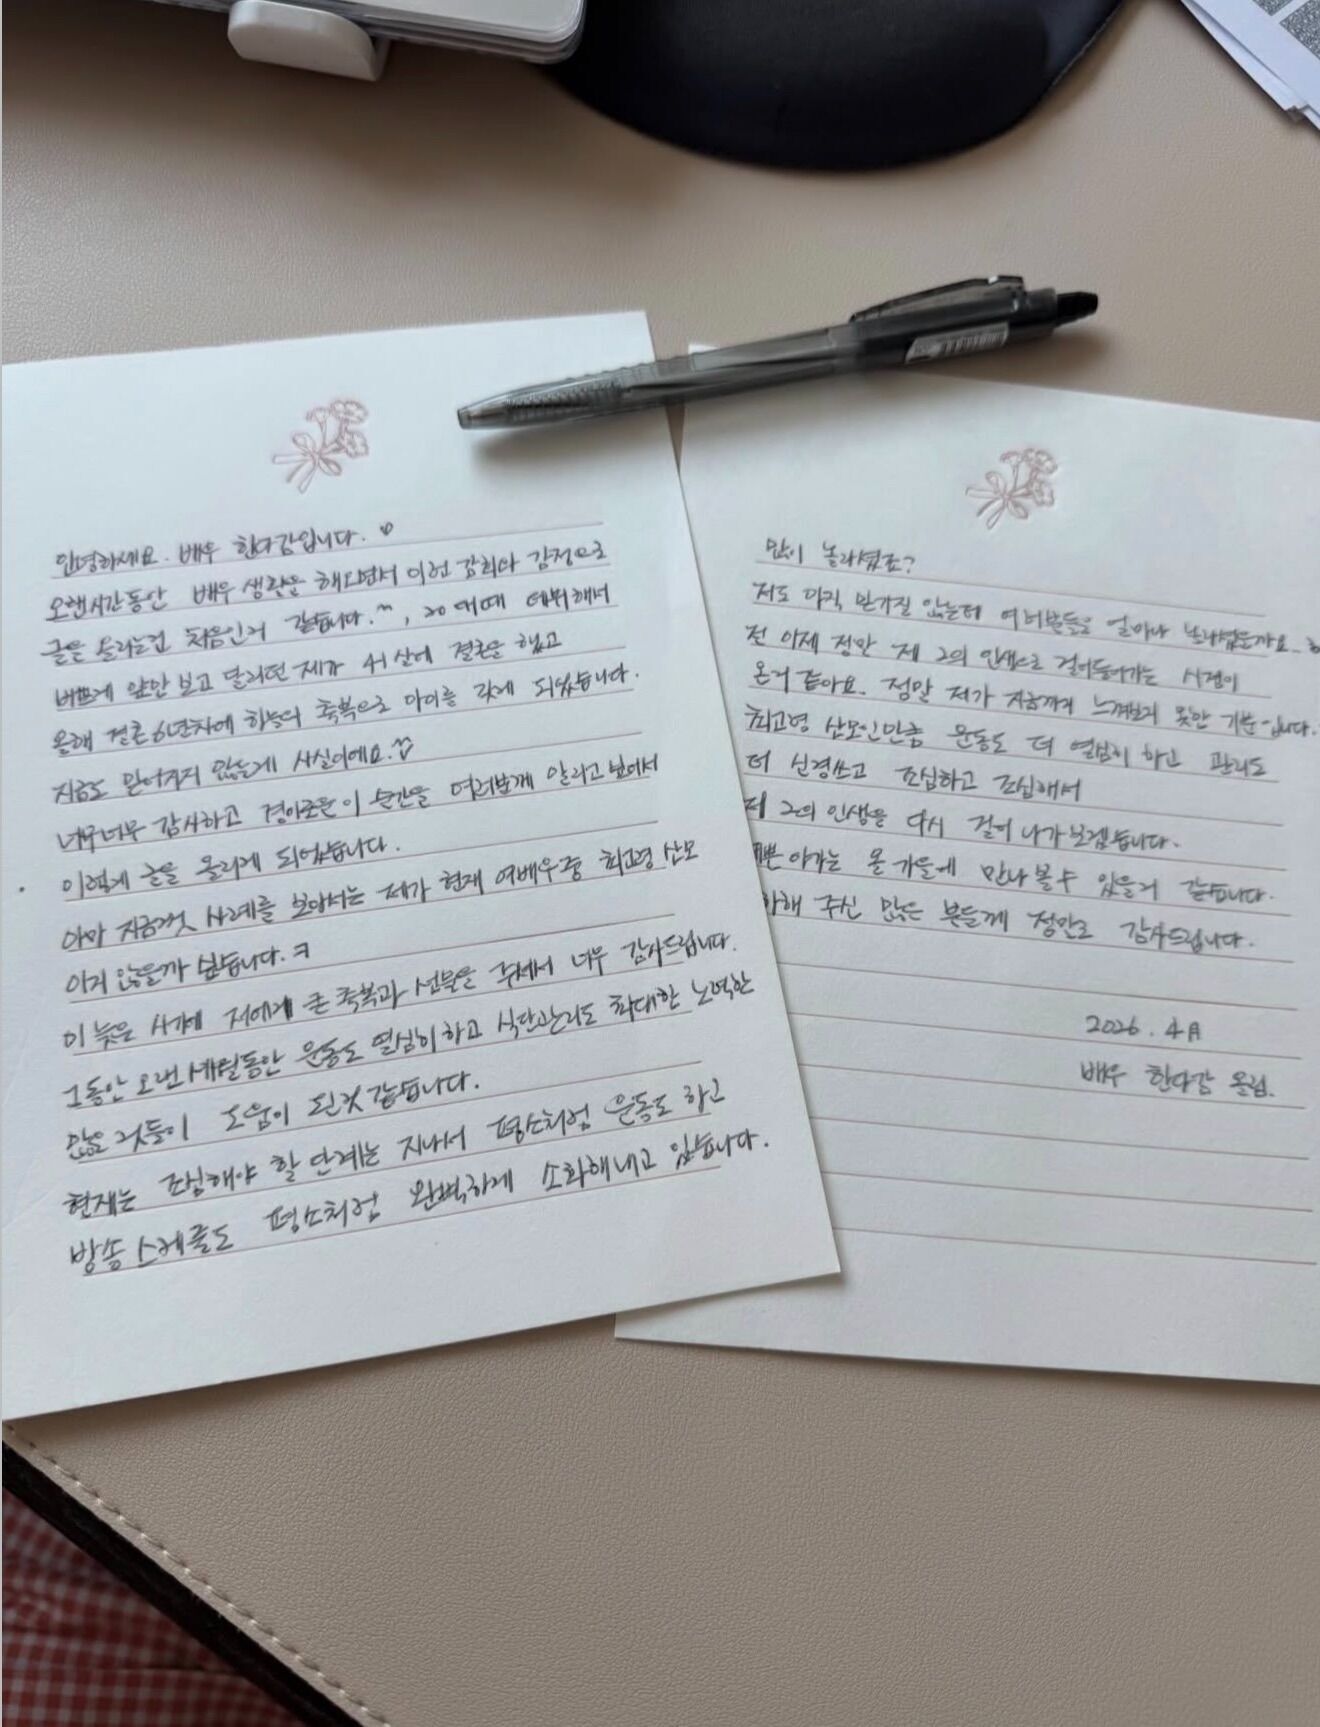 안녕하세요. 배우 한다감입니다. ♡
오랜시간동안 배우 생활을 해오면서 이런 감회와 감정으로
글을 올리는건 처음인거 같습니다.^^, 20대때 데뷔해서
바쁘게 앞만 보고 달리던 제가 41살에 결혼을 했고
올해 결혼 6년차에 하늘의 축복으로 아이를 갖게 되었습니다.
지금도 믿어지지 않는게 사실이에요.
너무너무 감사하고 경이로운 이 순간을 여러분께 알리고 싶어서
이렇게 글을 올리게 되었습니다.
아마 지금껏 사례를 보아서는 제가 현재 여배우중 최고령 산모
이지 않을까 싶습니다.ㅋ
이 늦은 시기에 저에게 큰 축복과 선물을 주셔서 너무 감사드립니다.
그동안 오랜 세월동안 운동도 열심히 하고 식단관리도 최대한 노력한
많은 것들이 도움이 된것 같습니다.
현재는 조심해야 할 단계는 지나서 평소처럼 운동도 하고
방송 스케줄도 평소처럼 완벽하게 소화해내고 있습니다.
많이 놀라셨죠?
저도 아직 믿기질 않는데 여러분들은 얼마나 놀라셨을까요..
전 이제 정말 제 2의 인생으로 걸어들어가는 시점이
온거 같아요. 정말 제가 지금까지 느껴보지 못한 기분입니다.
최고령 산모인만큼 운동도 더 열심히 하고 관리도
더 신경쓰고 조심하고 조심해서
제 2의 인생을 다시 걸어 나가보겠습니다.
쁜 아가는 올 가을에 만나볼수 있을거 같습니다.
하해 주신 많은 분들께 정말로 감사드립니다.
2026. 4月
배우 한다감 올림.